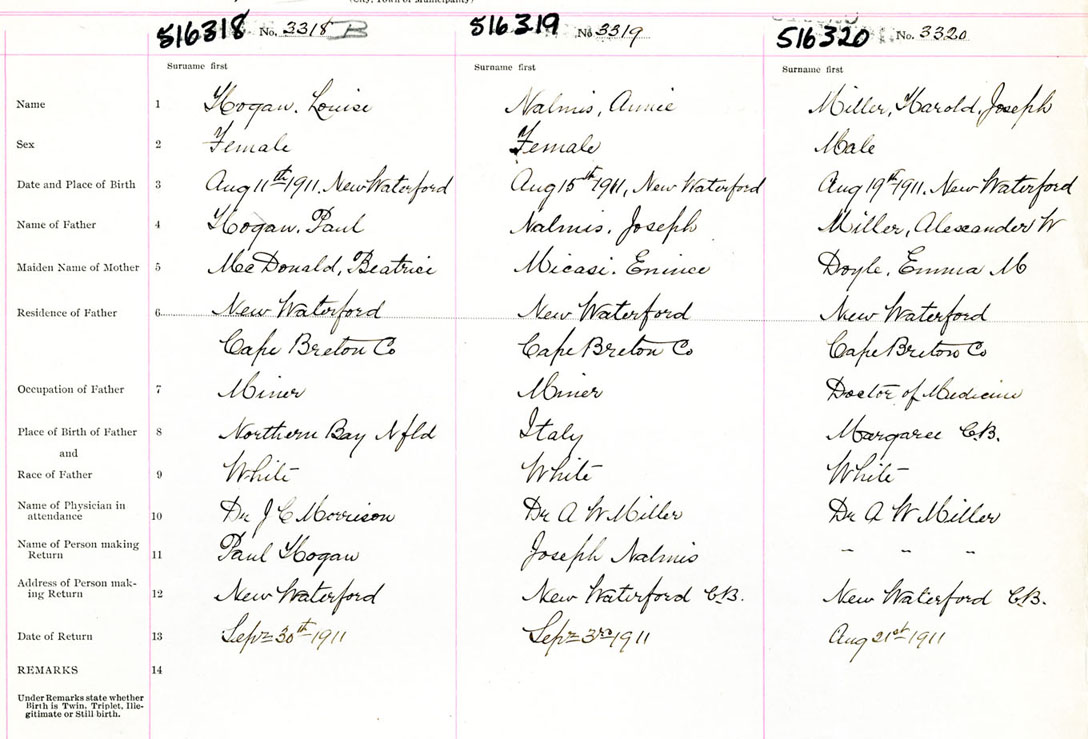 (City, Town or Municipality)
516318 No. 3318 B 516319 No 3319 516320 No. 3320
Surname first Surname first Surname first
Name 1 Hogan. Louise Nalmis, Annie Miller, Harold, Joseph
Sex 2 Female Female Male
Date and Place of Birth 3 Aug 11th 1911. New Waterford Aug 15th 1911, New Waterford Aug 19th 1911. New Waterford
Name of Father 4 Hogan, Paul Nalmis, Joseph Miller, Alexander W
Maiden Name of Mother 5 McDonald, Beatrice Micasi. Doyle, Emma M
Residence of Father 6 New Waterford New Waterford New Waterford
Cape Breton Co Cape Breton Co Cape Breton Co
Occupation of Father 7 Miner Miner Doctor of Medicine
Place of Birth of Father 8 Northern Bay Nfld Italy Margaree C.B.
and
Race of Father 9 White White White
Name of Physician in
attendance 10 Dr J C Morrison Dr A W Miller Dr A W Miller
Name of Person making
Return 11 Paul Hogan Joseph Nalmis " " "
Address of Person mak-
ing Return 12 New Waterford New Waterford C.B. New Waterford C.B.
Date of Return 13 Sept 30th 1911 Sept 3rd 1911 Aug 21st 1911
REMARKS 14
Under Remarks state whether
Birth is Twin, Triplet, Ille-
gitimate or Still birth.